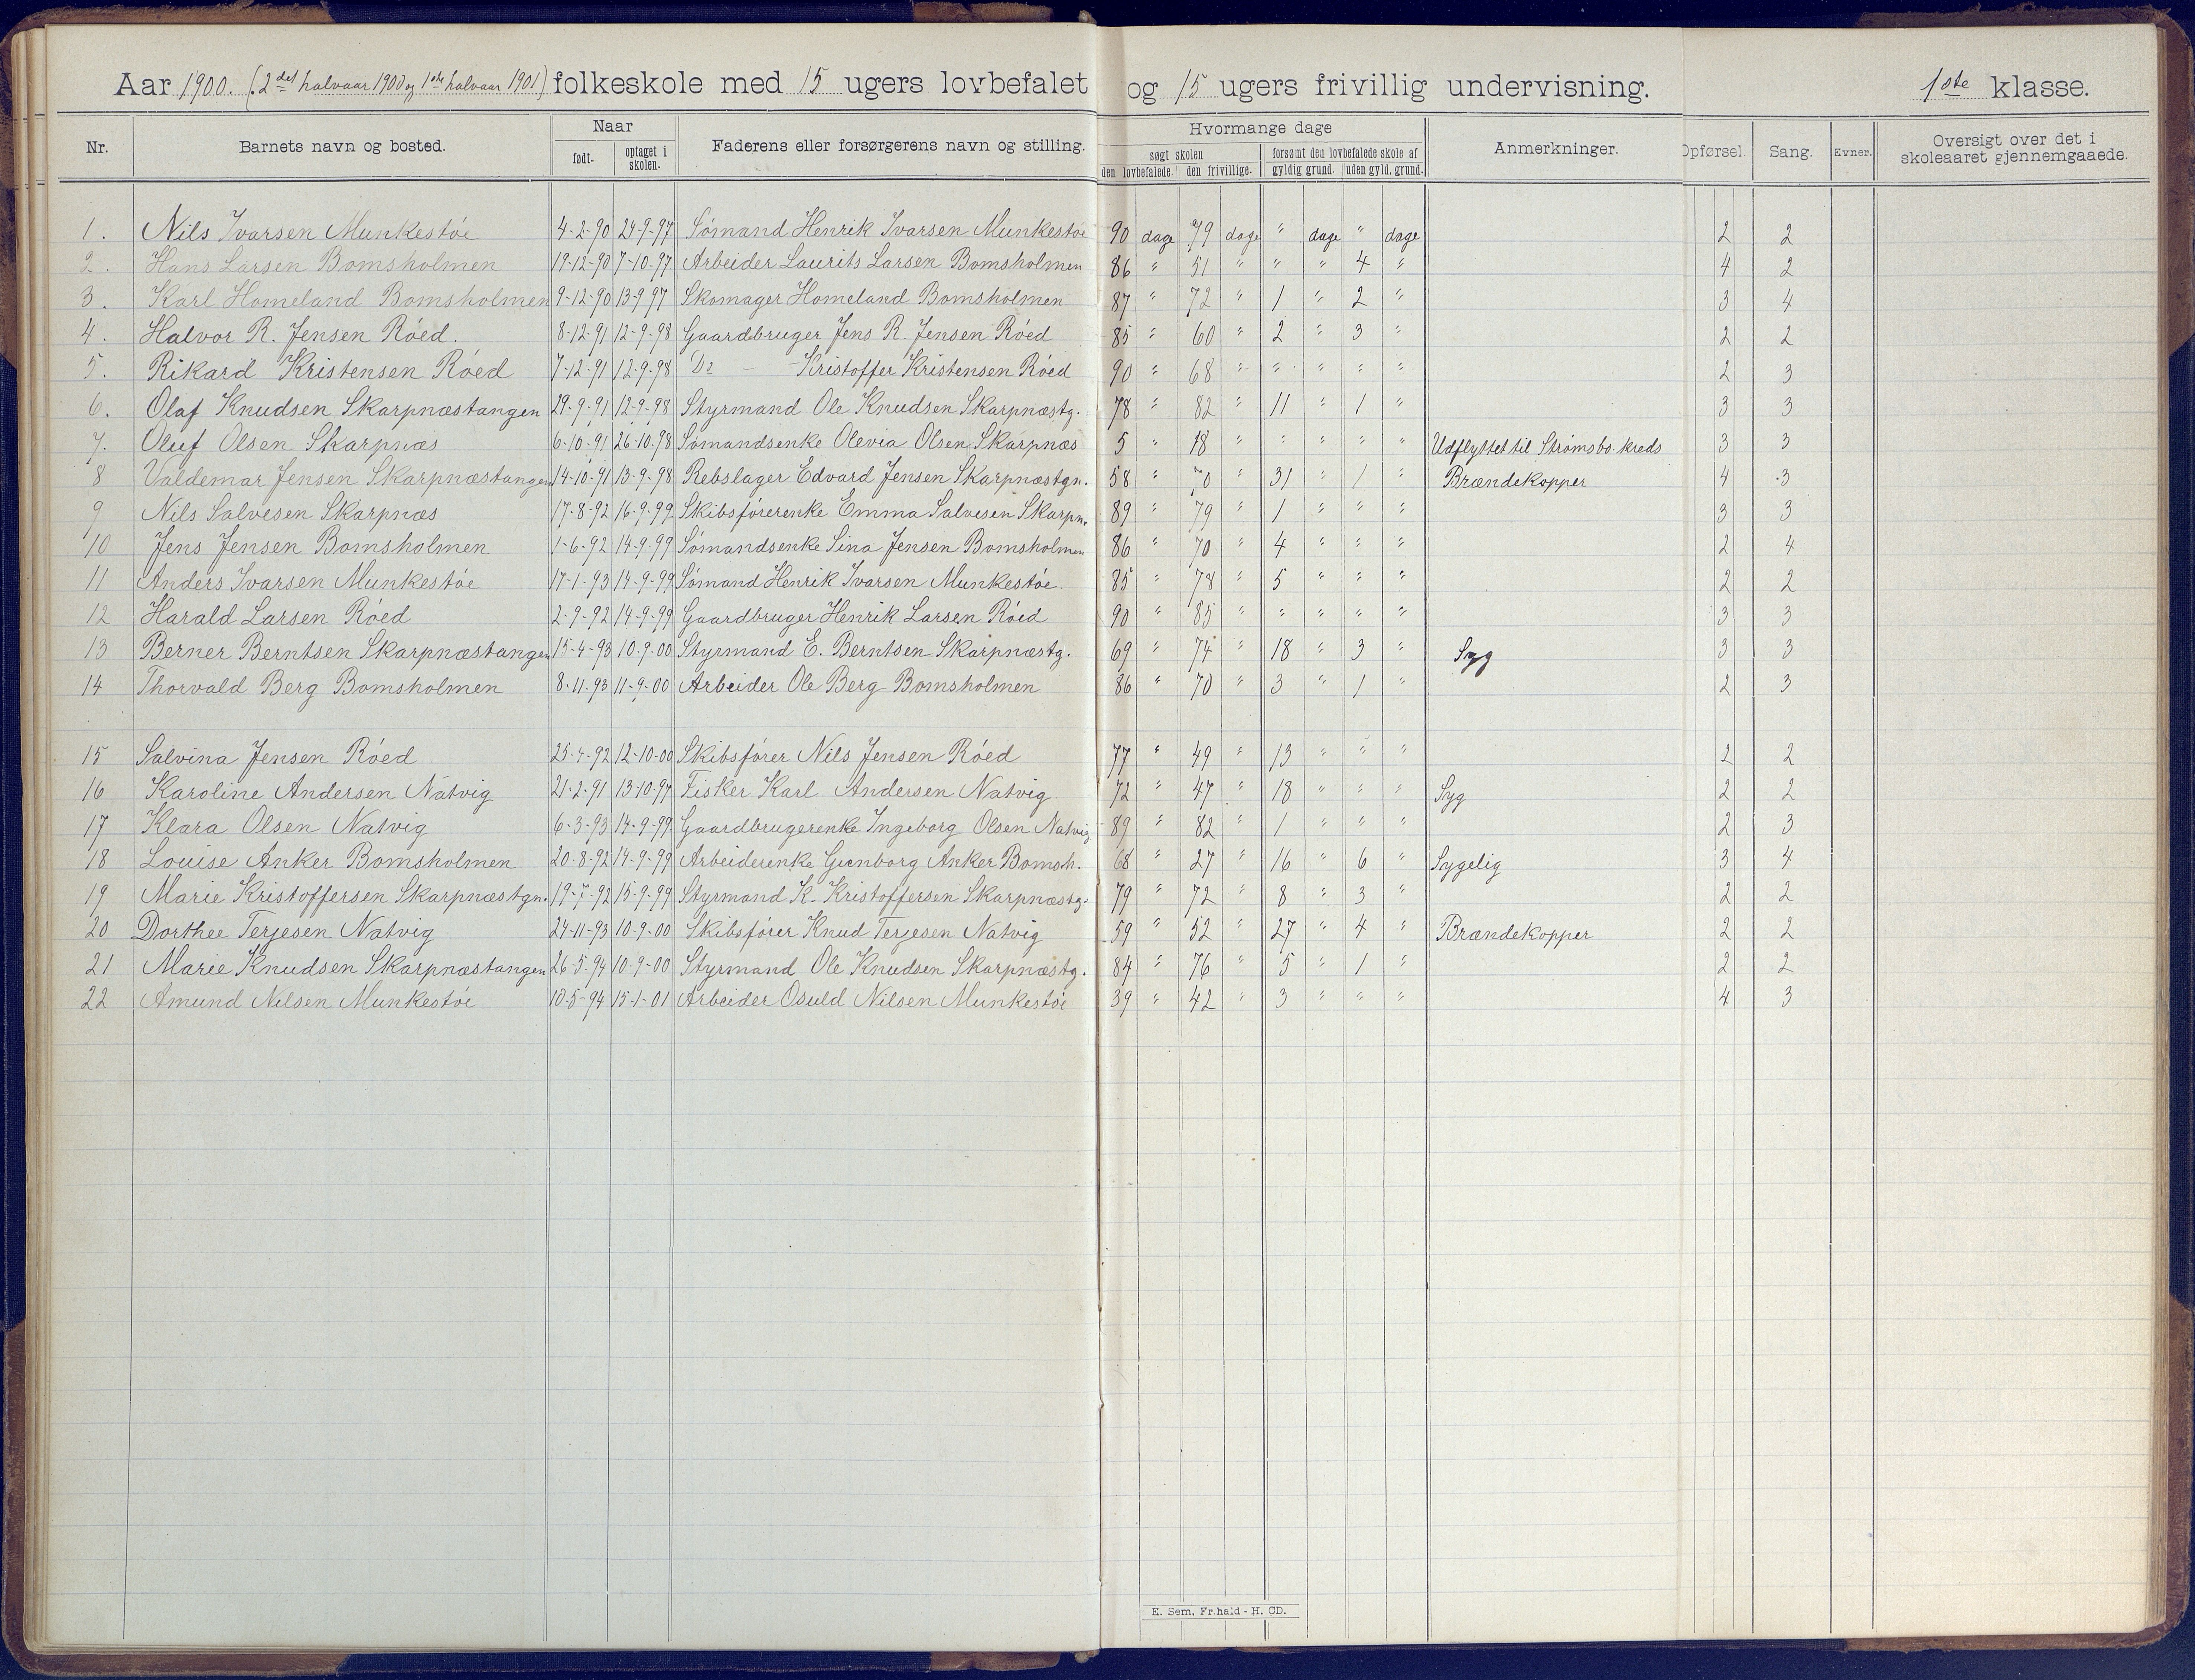 Aar 1900. (2det halvaar 1900 og 1ste halvaar 1901) folkeskole med 15 ugers lovbefalet og 15 ugers frivillig undervisning. 1ste klasse.
Nr. Barnets navn og bosted. Naar født. optaget i skolen. Faderens eller forsørgerens navn og stilling. Hvormange dage søgt skolen den lovbefalede. den frivillige. forsømt den lovbefalede skole af gyldig grund. uden gyld. grund. Anmerkninger. Opførsel. Sang. Evner. Oversigt over det i skoleaaret gjennemgaaede.
1. Nils Ivarsen Munkestøe 4-2-90 24-9-97 Sømand Henrik Ivarsen Munkestøe 90 dage 79 dage " dage " dage 2 2
2. Hans Larsen Bomsholmen 19-12-90 7-10-97 Arbeider Laurits Larsen Bomsholmen 86 " 51 " " " 4 " 4 2
3. Karl Homeland Bomsholmen 9-12-90 13-9-97 Skomager Homeland Bomsholmen 87 " 72 " 1 " 2 " 3 4
4. Halvor R. Jensen Røed. 8-12-91 12-9-98 Gaardbruger Jens R. Jensen Røed 85 " 60 " 2 " 3 " 2 2
5. Rikard Kristensen Røed 7-12-91 12-9-98 Do — Kristoffer Kristensen Røed 90 " 68 " " " " " 2 3
6. Olaf Knudsen Skarpnæstangen 29-9-91 12-9-98 Styrmand Ole Knudsen Skarpnæstg. 78 " 82 " 11 " 1 " 3 3
7. Oluf Olsen Skarpnæs 6-10-91 26-10-98 Sømandsenke Olevia Olsen Skarpnæs 5 " 18 " " " " " Udflyttet til Strømsbo. kreds 3 3
8 Valdemar Jensen Skarpnæstangen 14-10-91 13-9-98 Rebslager Edvard Jensen Skarpnæstgn. 58 " 70 " 31 " 1 " Brændekopper 4 3
9 Nils Salvesen Skarpnæs 17-8-92 16-9-99 Skibsførerenke Emma Salvesen Skarpn. 89 " 79 " 1 " " " 3 3
10 Jens Jensen Bomsholmen 1-6-92 14-9-99 Sømandsenke Sina Jensen Bomsholmen 86 " 70 " 4 " " " 2 4
11 Anders Ivarsen Munkestøe 17-1-93 14-9-99 Sømand Henrik Ivarsen Munkestøe. 85 " 78 " 5 " " " 2 2
12 Harald Larsen Røed 2-9-92 14-9-99 Gaardbruger Henrik Larsen Røed 90 " 85 " " " " " 3 3
13 Berner Berntsen Skarpnæstangen 15-4-93 10-9-00 Styrmand E. Berntsen Skarpnæstg. 69 " 74 " 18 " 3 " Syg 3 3
14 Thorvald Berg Bomsholmen 8-11-93 11-9-00 Arbeider Ole Berg Bomsholmen 86 " 70 " 3 " 1 " 2 3
15 Salvina Jensen Røed 25-4-92 12-10-00 Skibsfører Nils Jensen Røed 77 " 49 " 13 " " " 2 2
16 Karoline Andersen Natvig 21-2-91 13-10-97 Fisker Karl Andersen Natvig 72 " 47 " 18 " " " Syg 2 2
17 Klara Olsen Natvig 6-3-93 14-9-99 Gaardbrugerenke Ingeborg Olsen Natvig 89 " 82 " 1 " " " 2 3
18 Louise Anker Bomsholmen 20-8-92 14-9-99 Arbeiderenke Gunborg Anker Bomsh. 68 " 27 " 16 " 6 " Sygelig 3 4
19 Marie Kristoffersen Skarpnæstgn. 19-7-92 15-9-99 Styrmand K. Kristoffersen Skarpnæstg. 79 " 72 " 8 " 3 " 2 2
20 Dorthee Terjesen Natvig 24-11-93 10-9-00 Skibsfører Knud Terjesen Natvig 59 " 52 " 27 " 4 " Brændekopper 2 2
21 Marie Knudsen Skarpnæstangen 26-5-94 10-9-00 Styrmand Ole Knudsen Skarpnæstg. 84 " 76 " 5 " 1 " 2 2
22 Amund Nilsen Munkestøe 10-5-94 15-1-01 Arbeider Osuld Nilsen Munkestøe 39 " 42 " 3 " " " 4 3
E. Sem, Fr.hald - H. CD.